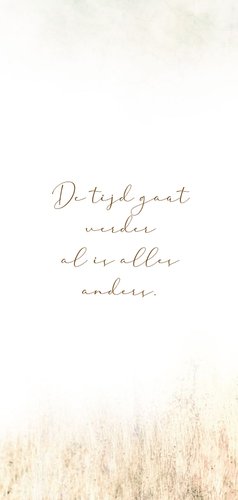 De tijd gaat
verder
al is alles
anders.